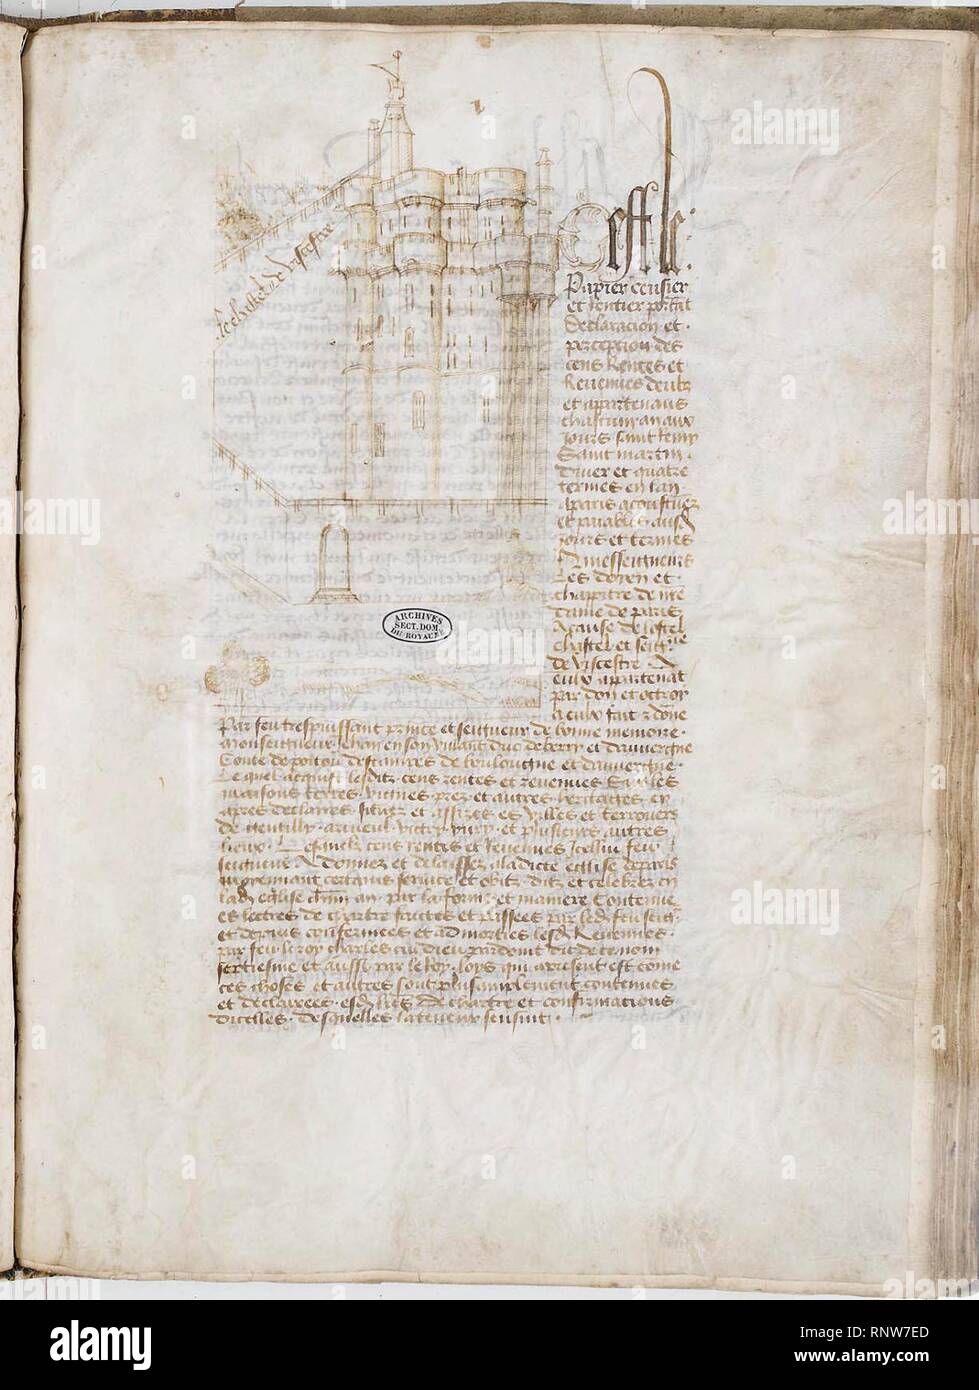 1
le chastel de vicestre
Cest le
Papier censier
et rentier portat
declaracion et
perception des
cens Rentes et
Revenues deubz
et apartenans
chascun an aux
jours saint Remy
Saint martin
diver et quatre
termes en lan
aparis acoustumez
et paiables ausd
jours et termes
A messeigneurs
Les doyen et
chapitre de nre
dame de paris
A cause de lostel
chastel et seigrie
de vicestre A
eulx apartenat
par don et octroy
A eulx fait z done
Par feu trespuissant prince et seigneur de bonne memoire
monseigneur Jehan en son vivant duc de berry et dauvergne
Conte de poitou destampes de boulongne et dauvergne
Lequel acquist lesditz cens rentes et revenues Et les
maisons terres vignes prez et autres heritages cy
apres declarees situez et assizes es villes et terrouers
de gentilly arcueil victry yvry et plusieurs autres
lieux Lesquelz cens rentes et revenues Icellui feu
seigneur A donnez et delaissez a ladicte eglise de paris
moyennant certains service et obitz ditz et celebrez en
lad eglise chun an par la forme et maniere Contenue
es lectres de chartre faictes et passees par led feu seigr
et depuis confermees et admorties lesd Revenues
par feu le roy charles cui dieu pardoint dit de ce nom
septiesme et aussi par le Roy loys qui apresent est come
ces choses et autres sont plus amplement contenues
et declarees esd lres de chartre et confirmacions
dicelles desquelles la teneur sensuit
ARCHIVES
SECT. DOM.
DU ROYAUME
alamy
Image ID: RNW7ED
www.alamy.com